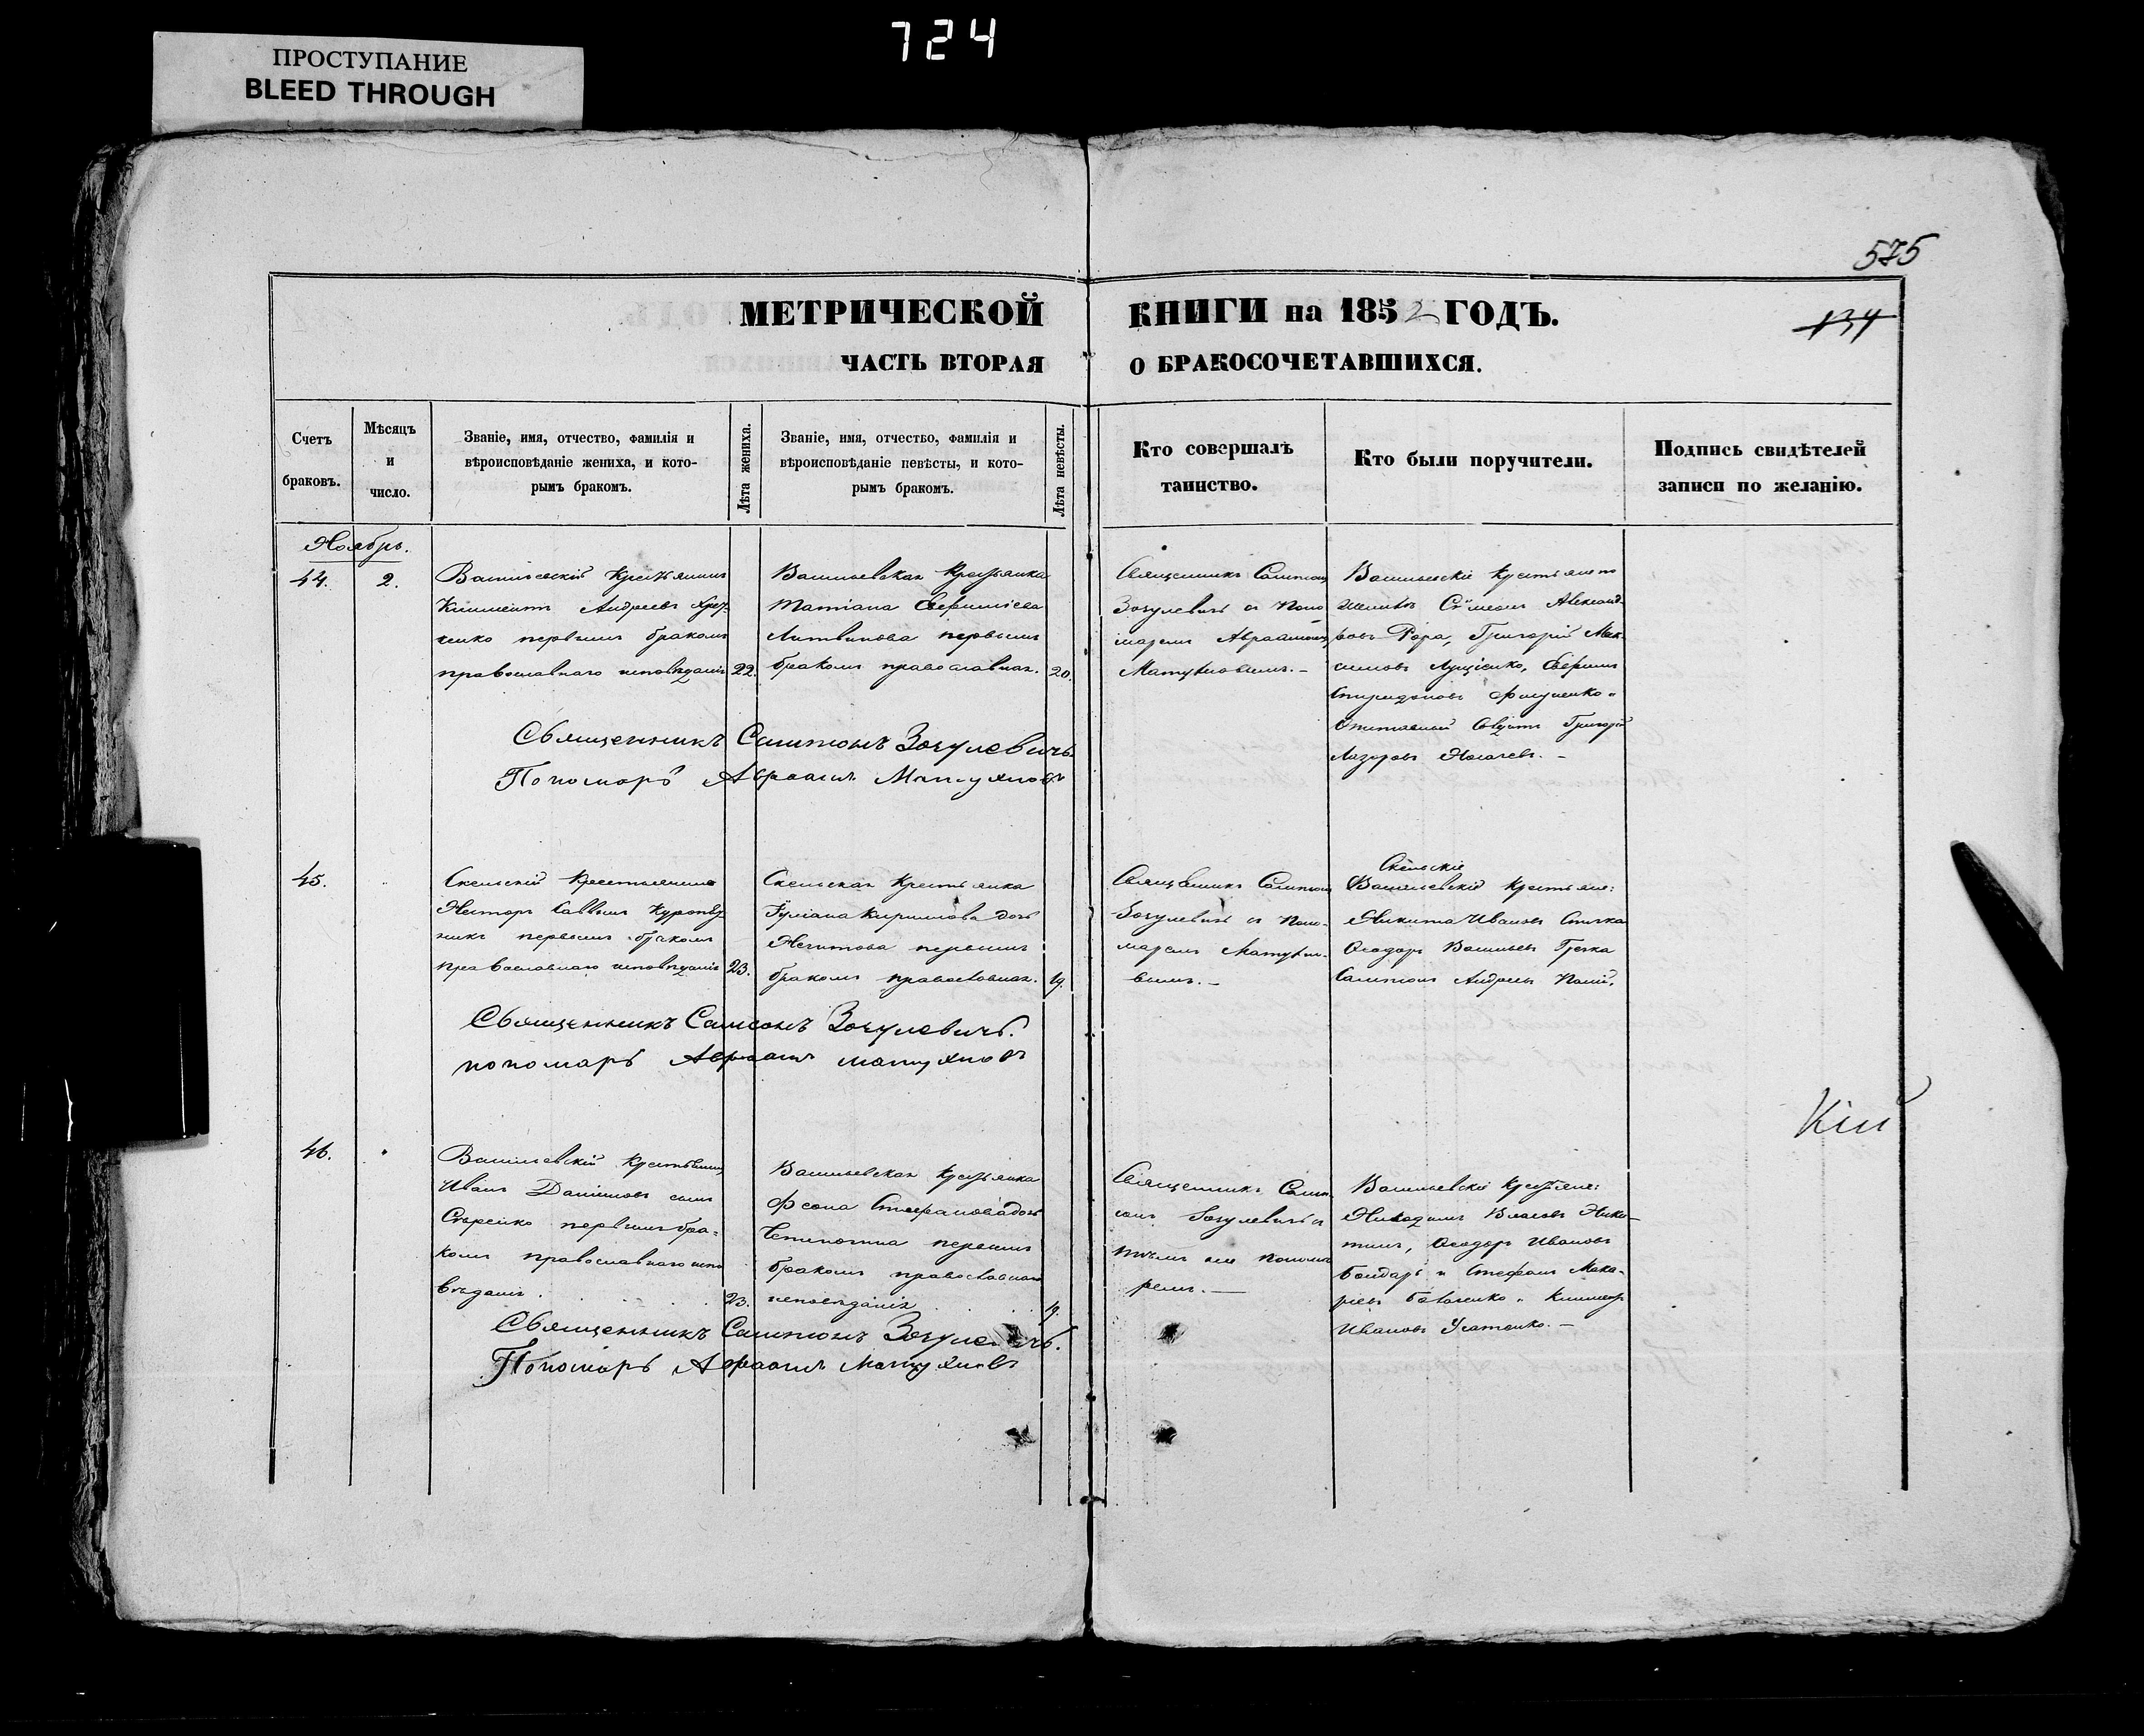 724
ПРОСТУПАНИЕ
BLEED THROUGH
575
134
МЕТРИЧЕСКОЙ КНИГИ на 1852 ГОДЪ.
ЧАСТЬ ВТОРАЯ О БРАКОСОЧЕТАВШИХСЯ.
Счетъ браковъ.
Мѣсяцъ и число.
Званіе, имя, отчество, фамилія и
вѣроисповѣданіе жениха, и кото-
рымъ бракомъ.
Лѣта жениха.
Званіе, имя, отчество, фамилія и
вѣроисповѣданіе невѣсты, и кото-
рымъ бракомъ.
Лѣта невѣсты.
Кто совершалъ
таинство.
Кто были поручители.
Подпись свидѣтелей
записи по желанію.
Ноябрь.
44.
2.
Васильевскій Крестьянинъ
Климентъ Андреевъ
первымъ бракомъ
православнаго исповѣданія
22.
Васильевская Крестьянка
Татіана Евфиміева
Литвинова первымъ
бракомъ православнаг.
20.
Священникъ Сампсонъ
Зогулевичъ съ Поно
маремъ Авраамомъ
Матухновымъ. –
Васильевскіе Крестьяне
Сѵмеонъ Александ-
ровъ Рора, Григорій Мак-
симовъ Луценко, Евфимъ
Спиридоновъ
Григорій
Лазоревъ
Священникъ Сампсонъ Зогулевичъ.
Пономарь Авраамъ Матухновъ
45.
Скельскій Крестьянинъ
Несторъ Саввинъ
первымъ бракомъ
православнаго исповѣданія
23.
Скельская Крестьянка
Іуліана Кириллова дочь
первымъ
бракомъ православнаг.
19.
Священникъ Сампсонъ
Зогулевичъ съ Поно-
маремъ Матухно-
вымъ. –
Скельскіе
Васильевскіе Крестьяне:
Никита Ивановъ
Ѳеодоръ Васильевъ Гречка
Сампсонъ Андреевъ
Священникъ Сампсонъ Зогулевичъ.
пономарь Авраамъ Матухновъ
46.
Васильевскій Крестьянинъ
Иванъ Даниловъ сынъ
первымъ бра-
комъ православнаго испо
вѣданія
23.
Васильевская Крестьянка
Стефанова дочь
первымъ
бракомъ православнаго
исповѣданія
19.
Священникъ Самп
сонъ Зогулевичъ съ
тѣмъ же Понома
ремъ. –
Васильевскіе Крестьяне:
Никодимъ Власовъ Ники-
тинъ, Ѳеодоръ Ивановъ
Бондарь и Стефанъ Мака-
ріевъ
Ивановъ Усатенко. –
Священникъ Сампсонъ Зогулевичъ.
Пономарь Авраамъ Матухновъ
Кій